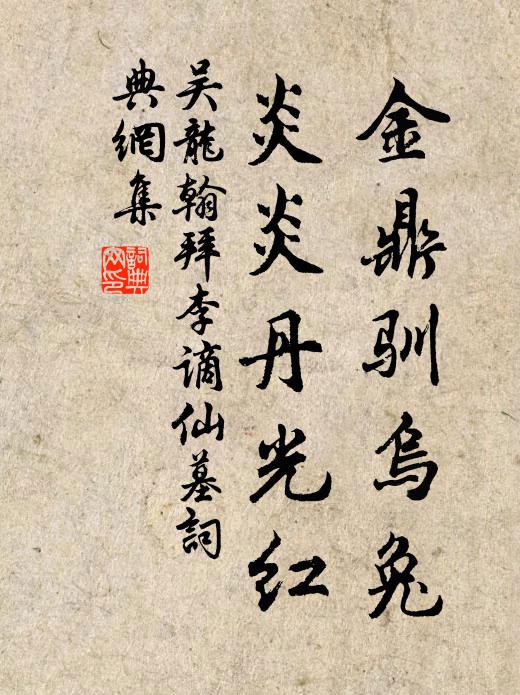 金鼎馴烏兔
炎炎丹光红
吴龍翰拜李謫仙墓詞
典網集
詞典網印